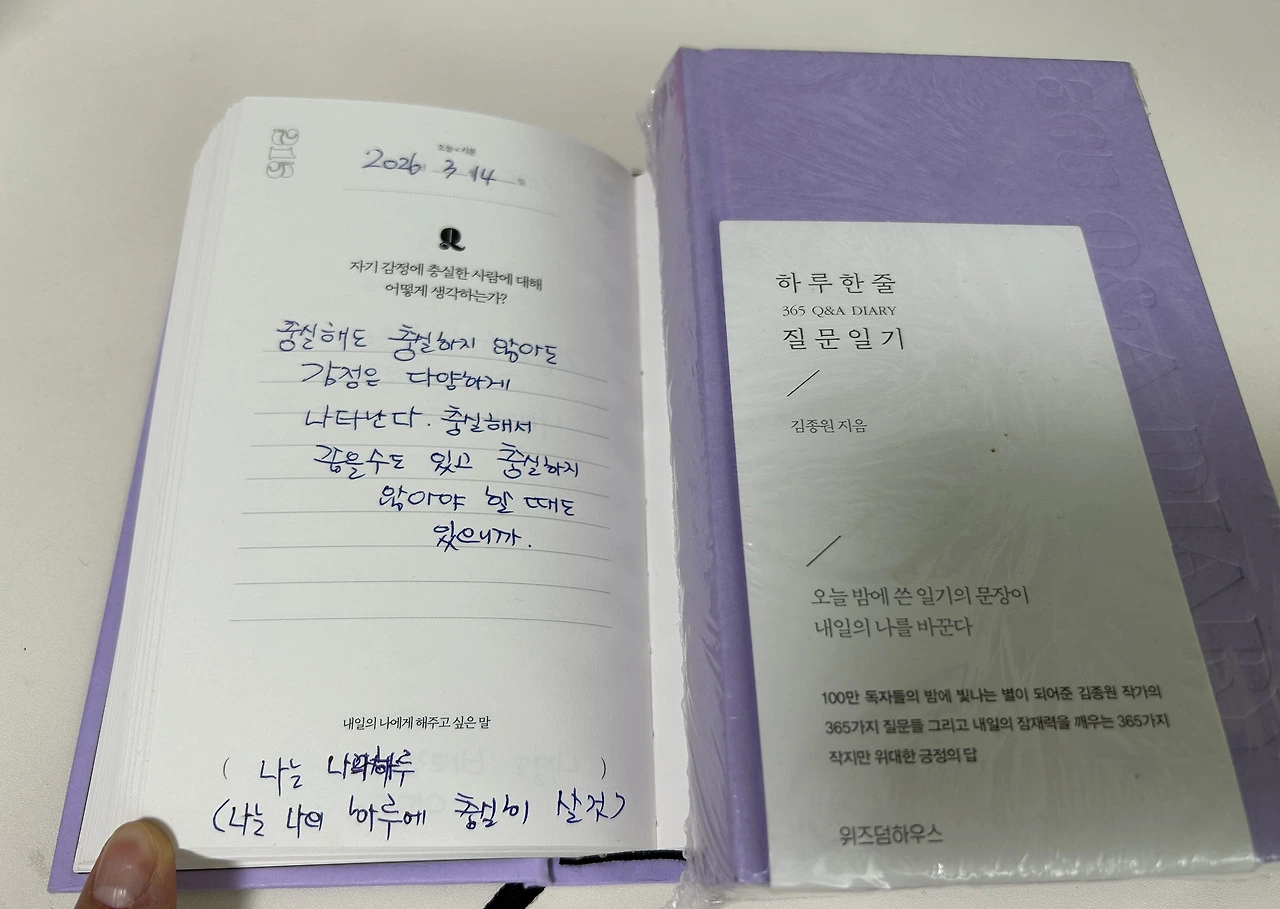 216
오늘의 기분
2026 3 14
Q
자기 감정에 충실한 사람에 대해
어떻게 생각하는가?
충실해도 충실하지 않아도
감정은 다양하게
나타난다. 충실해서
같을수도 있고 충실하지
않아야 할 때도
있으니까.
내일의 나에게 해주고 싶은 말
( 나는 )
(나는 나의 하루에 충실히 살것)
하루 한 줄
365 Q&A DIARY
질문 일기
김종원 지음
오늘 밤에 쓴 일기의 문장이
내일의 나를 바꾼다
100만 독자들의 밤에 빛나는 별이 되어준 김종원 작가의
365가지 질문들 그리고 내일의 잠재력을 깨우는 365가지
작지만 위대한 긍정의 답
위즈덤하우스
365 Q&A DIARY